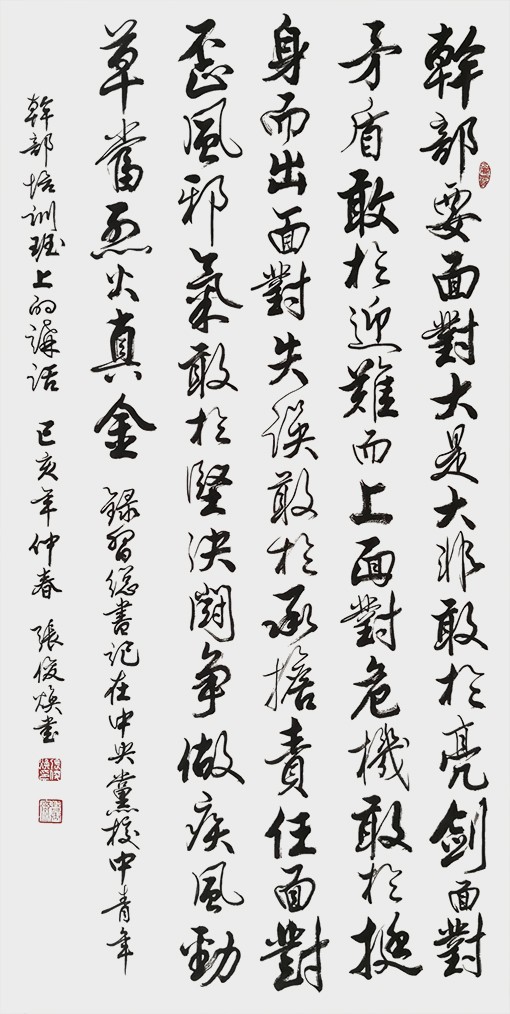 幹部要面對大是大非敢於亮劍面對
矛盾敢於迎難而上面對危機敢於挺
身而出面對失誤敢於承擔責任面對
歪風邪氣敢於堅決鬪争做疾風勁
草當烈火真金
錄習總書記在中央黨校中青年
幹部培訓班上的講话 己亥年仲春 張俊煥书